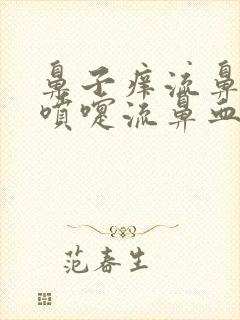 鼻子痒流鼻
喷嚏流鼻血
范春生